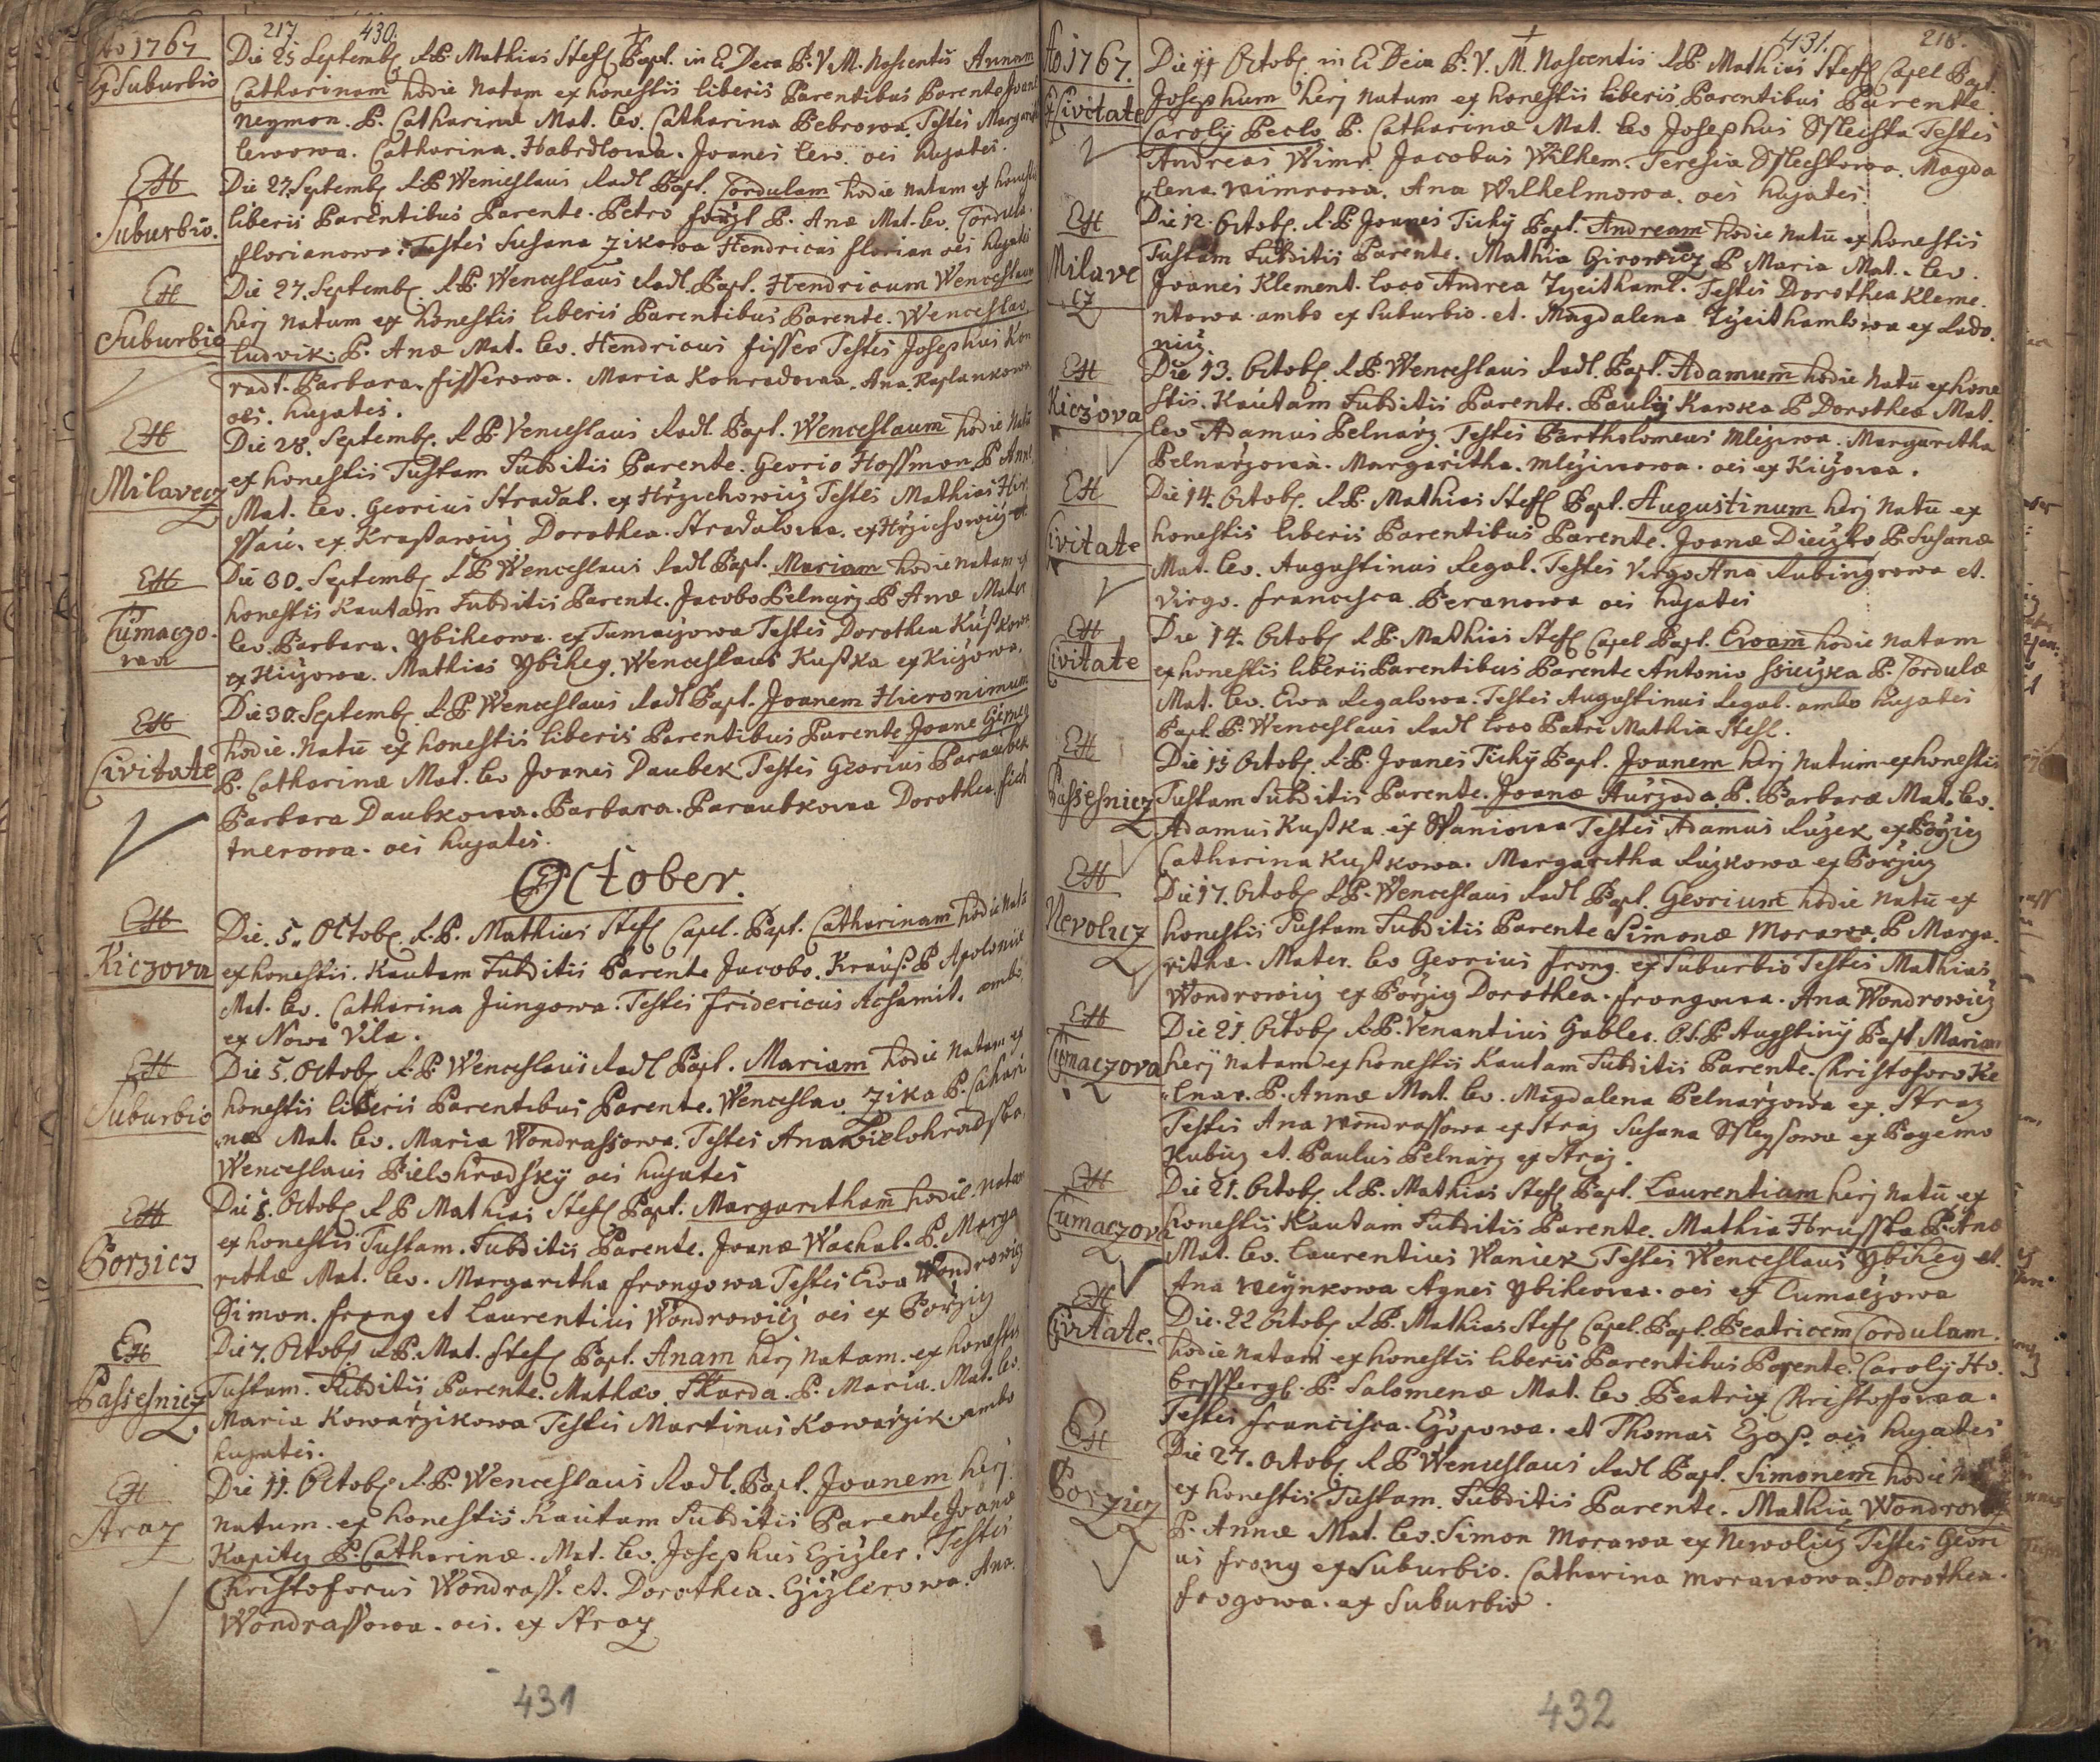 217 430.
Ao 1767
Ex Suburbio
Die 25 Septemb. R.P. Mathias Stefl Bapt. in E. Deca B.V.M. Nascentis Annam
Catharinam hodie Natam ex honestis liberis Parentibus Parente Joane
Neymon. P. Catharinæ Mat. lev. Catharina Bebrowa. Testes Margarit
lewowa. Catharina. Habrdlowa. Joanes lew. oes hujates.
Ex
Suburbio.
Die 27. Septemb. R.P. Wenceslaus Radl Bapt. Cordulam hodie natam ex honestis
liberis Parentibus Parente. Petro P. Anæ Mat. lev. Cordula.
florianowa. Testes Susana Zikowa Hendricus florian oes hujates
Ex
Suburbio
Die 27. Septemb. R.P. Wenceslaus Radl. Bapt. Hendricum Wenceslaum
herj natum ex honestis liberis Parentibus Parente. Wenceslao
ludvik. P. Anæ Mat. lev. Hendricus fisser Testes Josephus Kon
radt. Barbara. fisserowa. Maria Konradowa. Ana Kaplankowa
oes. hujates.
Ex
Milavecz
Die 28. Septemb. R.P. Venceslaus Radl. Bapt. Wenceslaum hodie Natu
ex honestis Tustam Subditis Parente. Georio Hoffmon P. Annæ
Mat. lev. Georius Stradal. ex Hrzichowicz Testes Mathias Hir
ssau. ex Kraßawicz Dorothea. Stradalowa. ex Hrzichowicz
Ex
Cumaczo-
wa
Die 30. Septemb. R.P. Wenceslaus Radl Bapt. Mariam hodie natam ex
honestis Kautam Subditis Parente. Jacobo Pelnarz P. Anæ Mater
lev. Barbara. Ybihowa. ex Tumaczowa Testes Dorothea Kußkowa
ex Kiczowa. Mathias Ybiheg. Wenceslaus Kußka ex Kiczowa.
Ex
Civitate
Die 30. Septemb. R.P. Wenceslaus Radl Bapt. Joanem Hieronimum
hodie. Natu ex honestis liberis Parentibus Parente Joane
P. Catharinæ Mat. lev Joanes Daubek Testes Georius Paraubek
Barbara Daubkowa. Barbara. Paraubkowa Dorothea
tnerowa. oes hujates.
October.
Ex
Kiczova
Die. 5. Octob. R.P. Mathias Stefl Capel. Bapt. Catharinam hodie Nata
ex honestis. Kautam Subditis Parente Jacobo. Krauß. P. Apoloniæ
Mat. lev. Catharina Jungowa. Testes fridericus Acsamit. ambo
ex Nowa Vila.
Ex
Suburbio
Die 5. Octob. R.P. Wenceslaus Radl Bapt. Mariam hodie natam ex
honestis liberis Parentibus Parente. Wenceslao Zika P. Cathari
næ Mat. lev. Maria Wondrassowa. Testes Ana Bielohradska.
Wenceslaus Bielohradsky oes hujates
Ex
Borzicz
Die 5. Octob. R.P. Mathias Stefl Bapt. Margaritham hodie. natam
ex honestis Tustam. Subditis Parente. Joanæ Wachal. P. Marga
rithæ Mat. lev. Margaritha frongowa Testes Ewa Wondrowicz
Simon. frong et Laurentius Wondrowicz oes ex Borzicz
Ex
Passesnicz
Die 7. Octob. R.P. Mat. Stefl Bapt. Anam herj Natam. ex honestis
Tustam. Subditis Parente. Mathæo. Skarda. P. Maria. Mat. lev.
Maria Kowarzikowa Testes Martinus Kowarzik. ambo
hujates.
Ex
Straz
Die 11. Octob. R.P. Wenceslaus Radl. Bapt. Joanem herj
Natum. ex honestis Kautam Subditis Parente Joanæ
Kapitez P. Catharinæ. Mat. lev. Josephus Czizler. Testes
Christoforus Wondrass. et. Dorothea. Czizlerowa. Ana.
Wondrassowa. oes. ex Straz
431
431. 218.
Ao. 1767.
Ex Civitate
Die 11 Octob. in E. Deca B.V.M. Nascentis R.P. Mathias Stefl Capel Bapt.
Josephum herj natum ex honestis liberis Parentibus Parente.
Caroly Peclo P. Catharinæ Mat. lev Josephus Testes
Andreas Wimr. Jacobus Wilhem. Teresia Magda
lena. wimrowa. Ana Wilhelmowa. oes hujates.
Ex
Milave
cz
Die 12. Octob. R.P. Joanes Tichy Bapt. Andream hodie Natu ex honestis
Tustam Subditis Parente. Mathia Girowicz P Maria Mat. lev.
Joanes Klement. loco Andrea Testes Dorothea Kleme.
ntowa ambo ex Suburbio. et. Magdalena ex Lado.
nicz
Ex
Kiczova
Die 13. Octob. R.P. Wenceslaus Radl. Bapt. Adamum hodie Natu ex hone
stis. Kautam Subditis Parente. Pauly Kawka P Dorothea Mat.
lev Adamus Pelnarz. Testes Bartholomeus Margaritha
Pelnarzowa. Margaritha. oes ex Kiczowa.
Ex
Civitate
Die 14. Octob. R.P. Mathias Stefl Bapt. Augustinum herj Natu ex
honestis liberis Parentibus Parente. Joanæ P. Susanæ
Mat. lev. Augustinus Regal. Testes Virgo Ana Rubingrowa et.
Virgo. francisca Beranowa oes hujates
Ex
Civitate
Die 14. Octob. R.P. Mathias Stefl Capel Bapt. Ewam hodie natam
ex honestis liberis Parentibus Parente Antonio P. Cordulæ
Mat. lev. Ewa Regalowa. Testes Augustinus Regal. ambo hujates
Bapt. P. Wenceslaus Radl loco Patri Mathia Stefl.
Ex
Passesnicz
Die 15 Octob. R.P. Joanes Tichy Bapt. Joanem herj Natum ex honestis
Tustam Subditis Parente. Joanæ Hurzada. P. Barbaræ Mat. lev.
Adamus Kußka ex Waniowa Testes Adamus Ruzek ex Borzicz
Catharina Kußkowa. Margaritha Ruzkowa ex Borzicz
Ex
Nevolicz
Die 17. Octob. R.P. Wenceslaus Radl Bapt. Georium hodie Natu ex
honestis Tustam Subditis Parente Simonæ Morawa. P Marga.
rithæ. Mater. lev Georius frong. ex Suburbio Testes Mathias
Wondrowicz ex Borzicz Dorothea. frongowa. Ana Wondrowicz
Ex
Cumaczova
Die 21. Octob. R.P. Venantius Gabler. O.S.P. Augstiny Bapt Mariam
herj natam ex honestis Kautam Subditis Parente. Christoforo Ke
lnar. P. Annæ Mat. lev. Magdalena Pelnarzowa ex Straz
Testes Ana wondrassowa ex Straz Susana ex
Kubicz et. Paulus Pelnarz ex Straz.
Ex
Cumaczova
Die 21. Octob. R.P. Mathias Stefl Bapt. Laurentium herj natu ex
honestis Kautam Subditis Parente. Mathia Hrusska P. Anæ
Mat. lev. Laurentius Waniek Testes Wenceslaus Ybiheg et.
Ana Agnes Ybihowa. oes ex Cumaczowa
Ex
Civitate.
Die. 22 Octob. R.P. Mathias Stefl Capel. Bapt. Beatricem Cordulam.
hodie natam ex honestis liberis Parentibus Parente. Caroly Ho.
P. Salomenæ Mat. lev Beatrix Christofowa.
Testes francisca. et Thomas oes hujates
Ex
Borzicz
Die 27. Octob. R.P. Wenceslaus Radl Bapt. Simonem hodie
ex honestis Tustam. Subditis Parente. Mathia Wondrowicz
P. Annæ Mat. lev. Simon Morawa ex Newolicz Testes Geori
us frong ex Suburbio. Catharina morawowa. Dorothea.
frogowa. ex Suburbio.
432